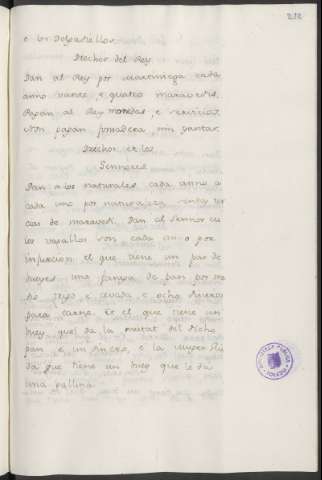 212
e los Solgadiellos
Drechos del Rey
Dan al Rey por martiniega cada
anno veinte, e quatro maravedis.
Pagan al Rey monedas, e servicios
Non pagan fonsadera, nin yantar.
Drechos de los
Sennores
Dan a los naturales cada anno a
cada uno por naturaleza
cias de maravedi. Dan al sennor cu
ios vasallos son cada anno por
infurcion el que tiene un par de
bueyes una fanega de pan por
dio trigo e cevada e ocho dineros
para carne. Et el que tiene un
buey quel da la mitat del dicho
pan e un dinero, e la muger
da que tiene un buey que le da
una gallina
BIBLIOTECA PUBLICA
TOLEDO